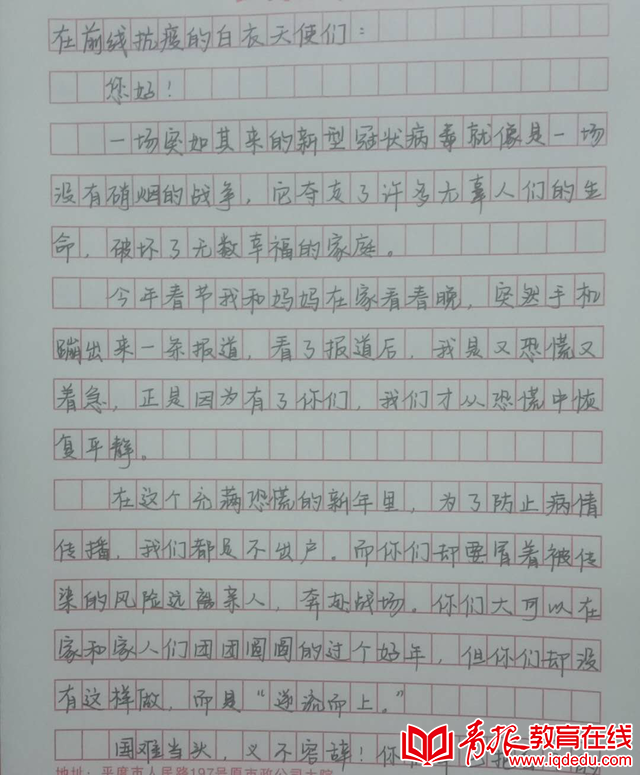 在前线抗疫的白衣天使们：
您好！
一场突如其来的新型冠状病毒就像是一场
没有硝烟的战争，它夺走了许多无辜人们的生
命，破坏了无数幸福的家庭。
今年春节我和妈妈在家看春晚，突然手机
蹦出来一条报道，看了报道后，我是又恐慌又
着急，正是因为有了你们，我们才从恐慌中恢
复平静。
在这个充满恐慌的新年里，为了防止病情
传播，我们都是不出户。而你们却要冒着被传
染的风险远离亲人，奔赴战场。你们大可以在
家和家人们团团圆圆的过个好年，但你们却没
有这样做，而是“逆流而上。”
国难当头，义不容辞！你
地址：平度市人民路197号原市政公司大院
青报教育在线
www.iqdedu.com